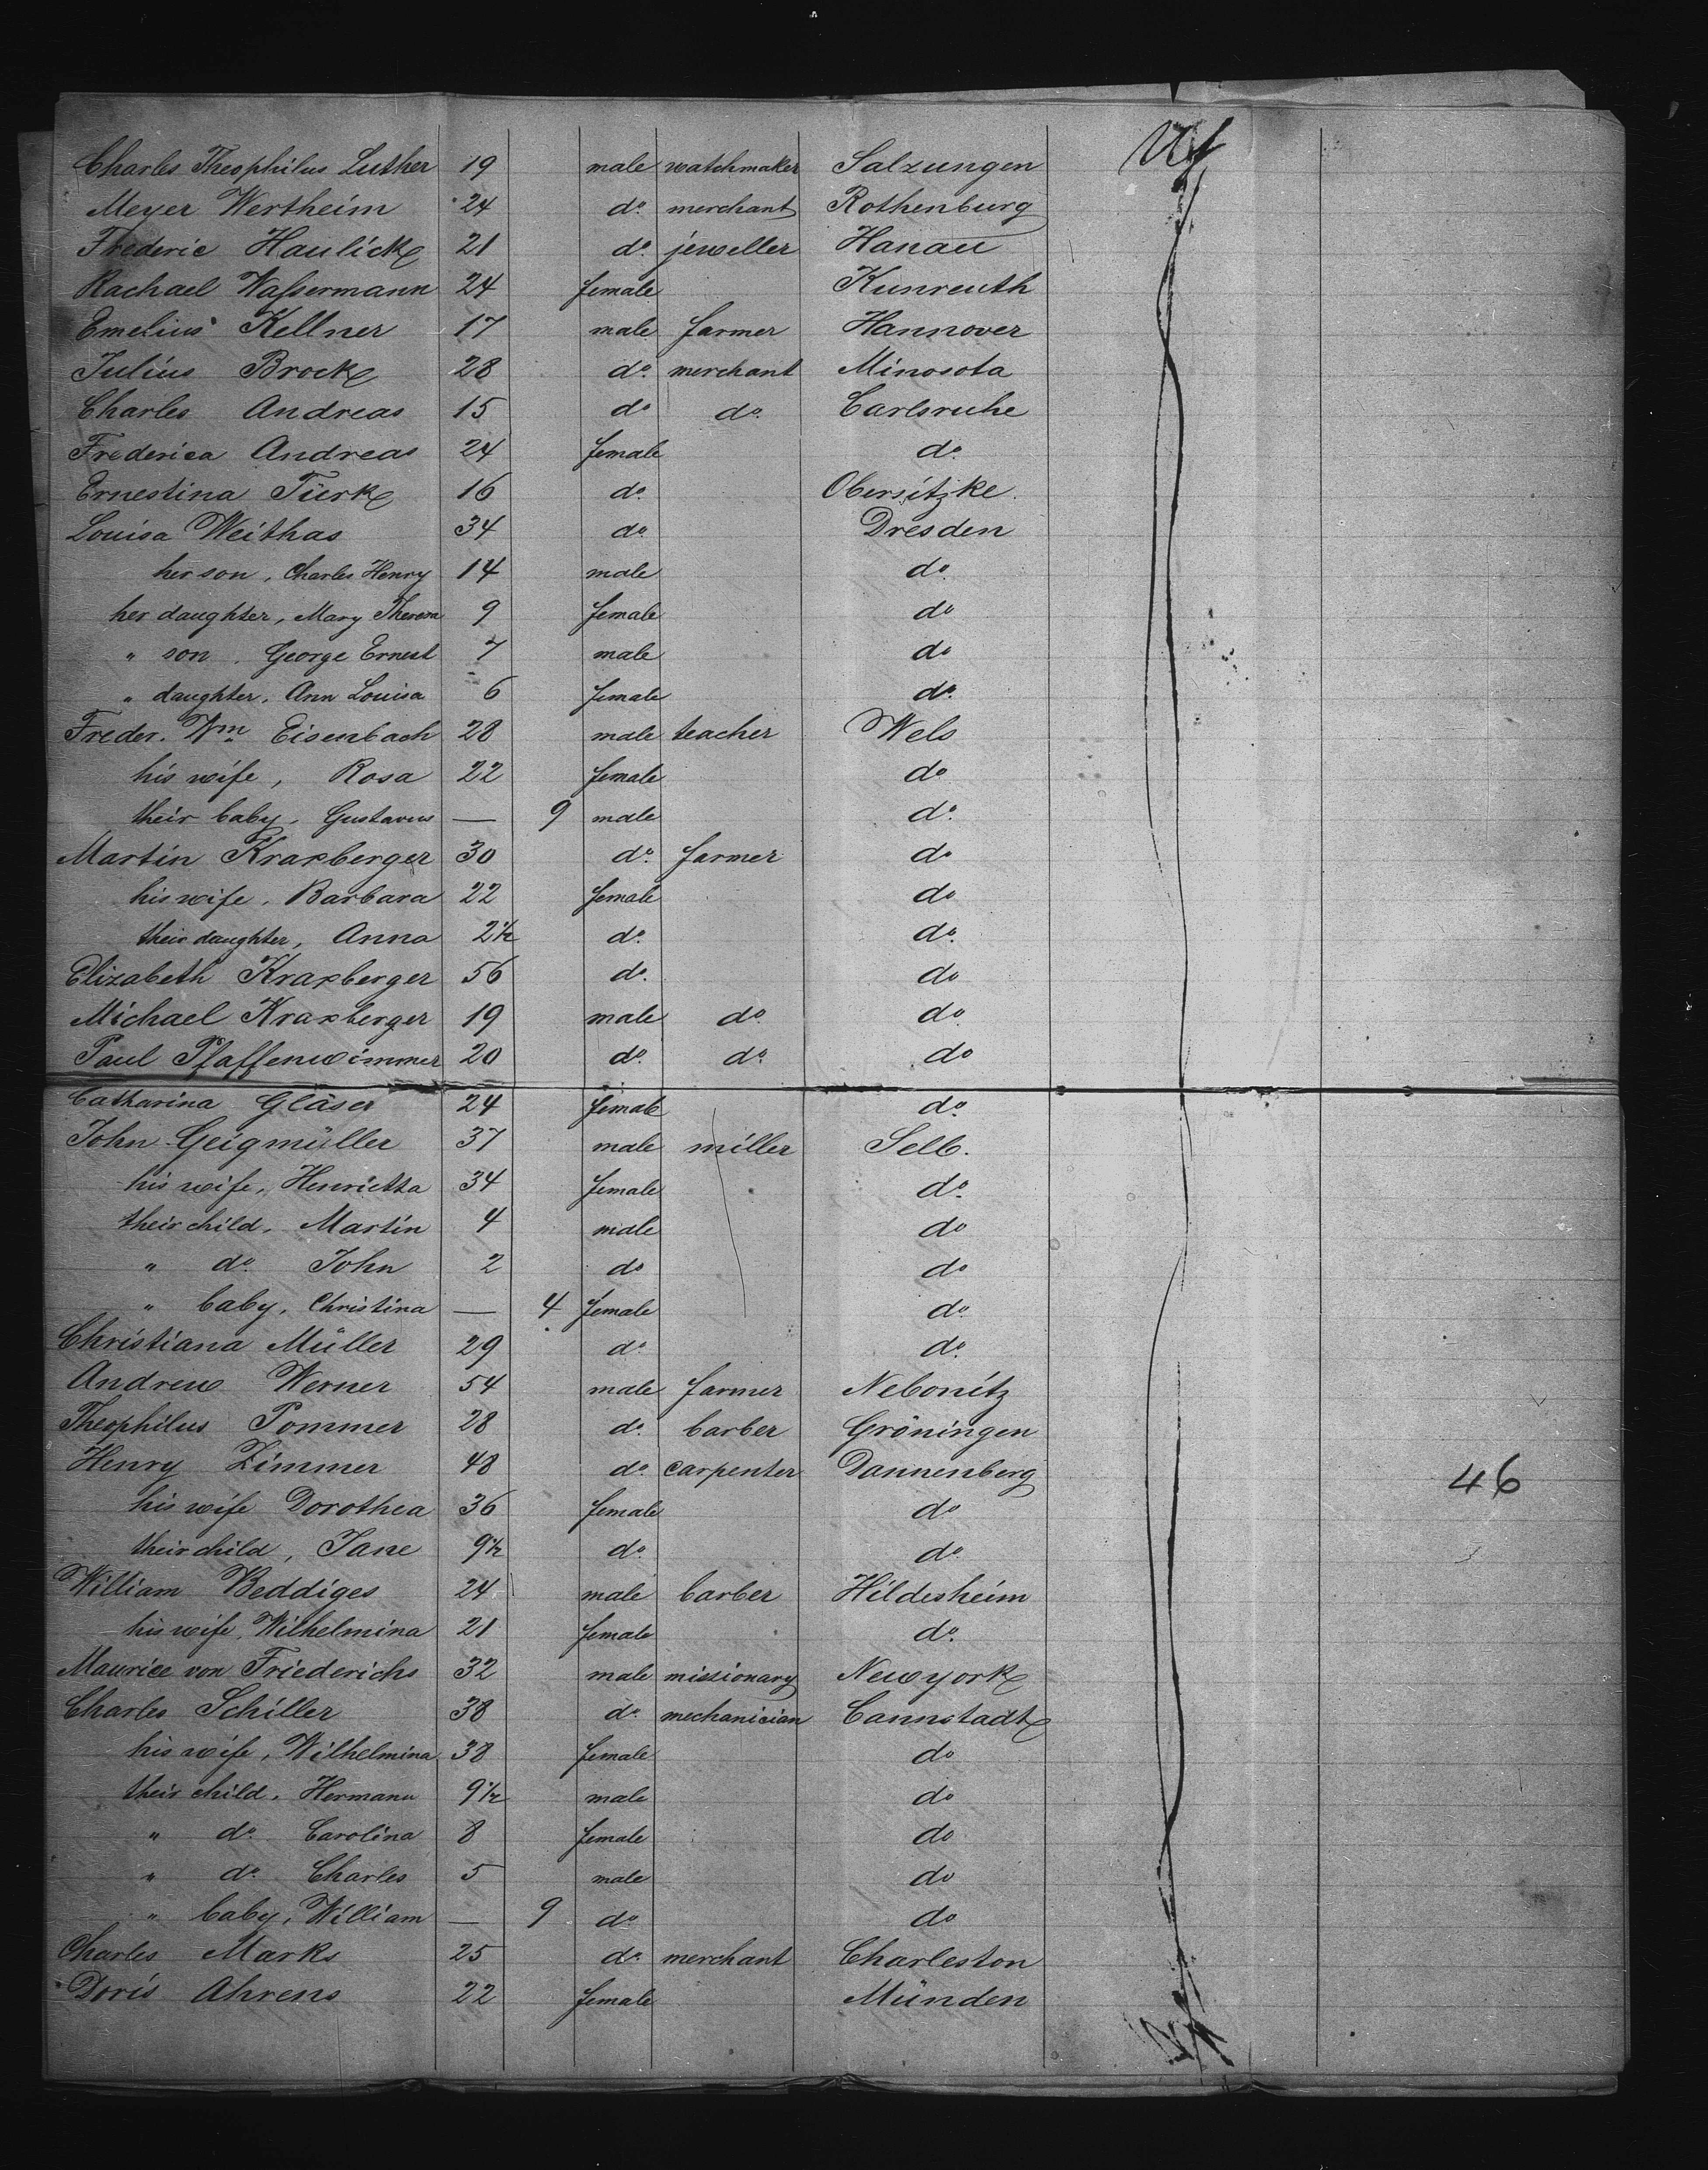 Charles Theophilus Luther 19 male watchmaker Salzungen
Meyer Wertheim 24 do. merchant Rothenburg
Frederic Haulick 21 do. jeweller Hanau
Rachael Waſsermann 24 female Kunreuth
Emelius Kellner 17 male farmer Hannover
Julius Brock 28 do. merchant Minosota
Charles Andreas 15 do do. Carlsruhe
Frederica Andreas 24 female do.
Ernestina Türk 16 do. Obersitzke.
Louisa Weithas 34 do. Dresden
her son, Charles Henry 14 male do.
her daughter, Mary 9 female do
" son, George Ernest 7 male do
" daughter, Ann Louisa 6 female do.
Freder. Wm Eisenbach 28 male teacher Wels
his wife, Rosa 22 female do
their baby, Gustavus — 9 male do.
Martin Kraxberger 30 do. farmer do
his wife, Barbara 22 female do
their daughter, Anna 2½ do. do.
Elizabeth Kraxberger 56 do. do
Michael Kraxberger 19 male do do
Paul Pfaffenwimmer 20 do. do. do
Catharina Gläser 24 female do.
John Geigmüller 37 male miller Selb.
his wife, Henrietta 34 female do.
their child, Martin 4 male do
" do. John 2 do do
" baby, Christina — 4 female do.
Christiana Müller 29 do. do.
Andrew Werner 54 male farmer Nebonitz
Theophilus Pommer 28 do. barber Gröningen
Henry Zimmer 48 do. carpenter Dannenberg
46
his wife Dorothea 36 female do
their child, Jane 9½ do. do.
William Beddiges 24 male barber Hildesheim
his wife, Wilhelmina 21 female do.
Maurice von Friederichs 32 male missionary Newyork
Charles Schiller 38 do. mechanician Cannstadt
his wife, Wilhelmina 38 female do
their child, Hermann 9½ male do
" do. Carolina 8 female do
" do. Charles 5 male do
" baby, William — 9 do. do
Charles Marks 25 do. merchant Charleston
Doris Ahrens 22 female Münden